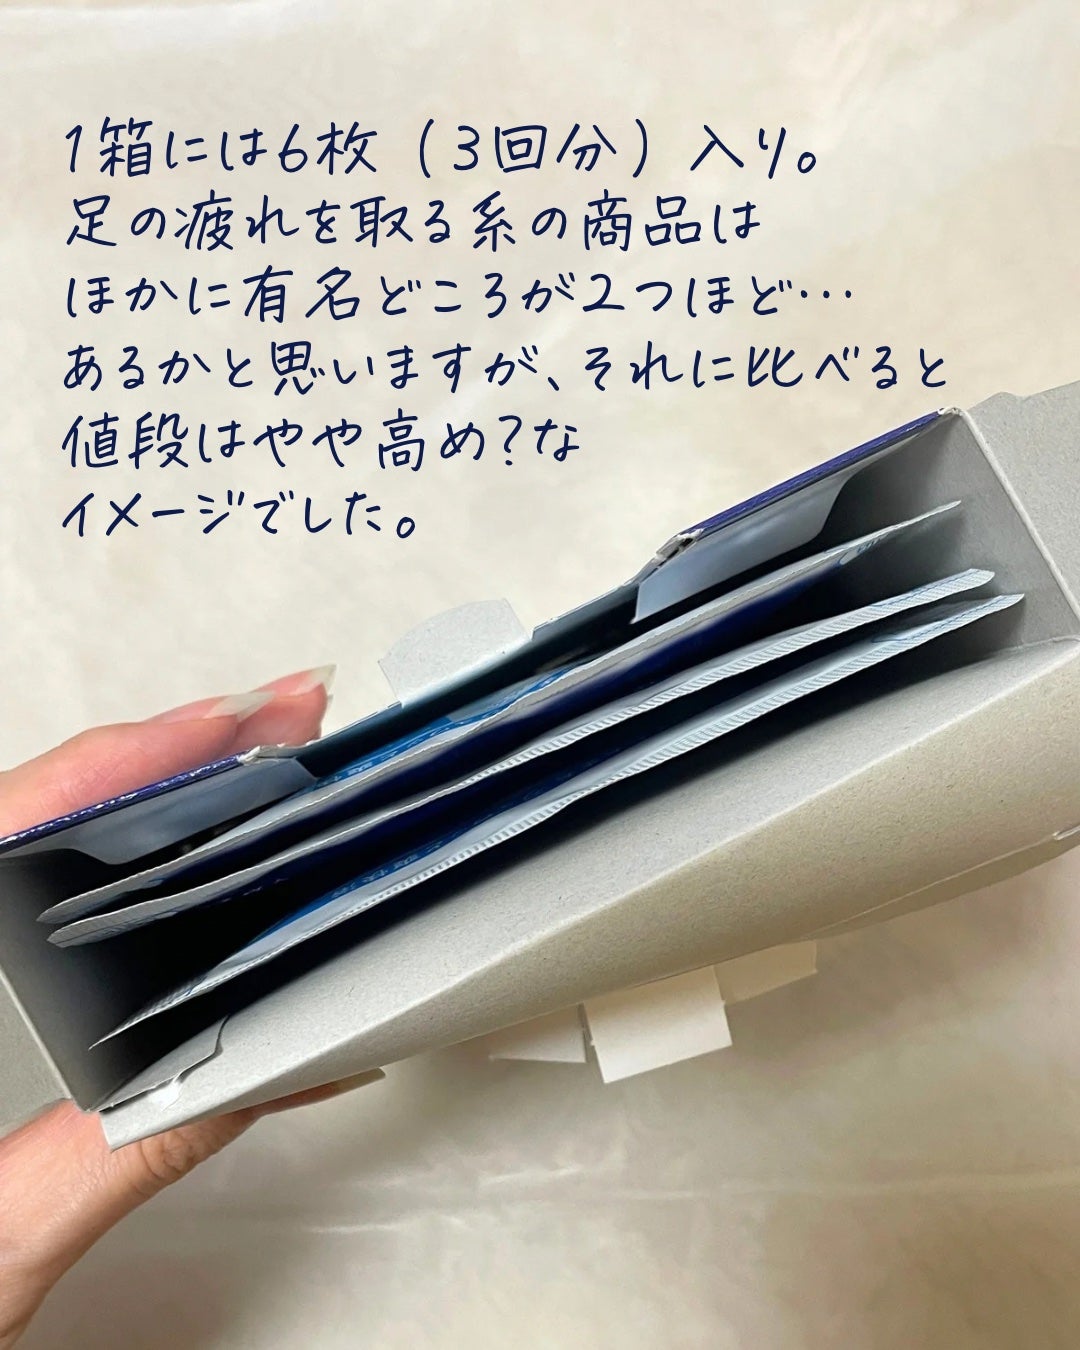 1箱には6枚（3回分）入り。
足の疲れを取る系の商品は
ほかに有名どころが2つほど…
あるかと思いますが、それに比べると
値段はやや高め?な
イメージでした。